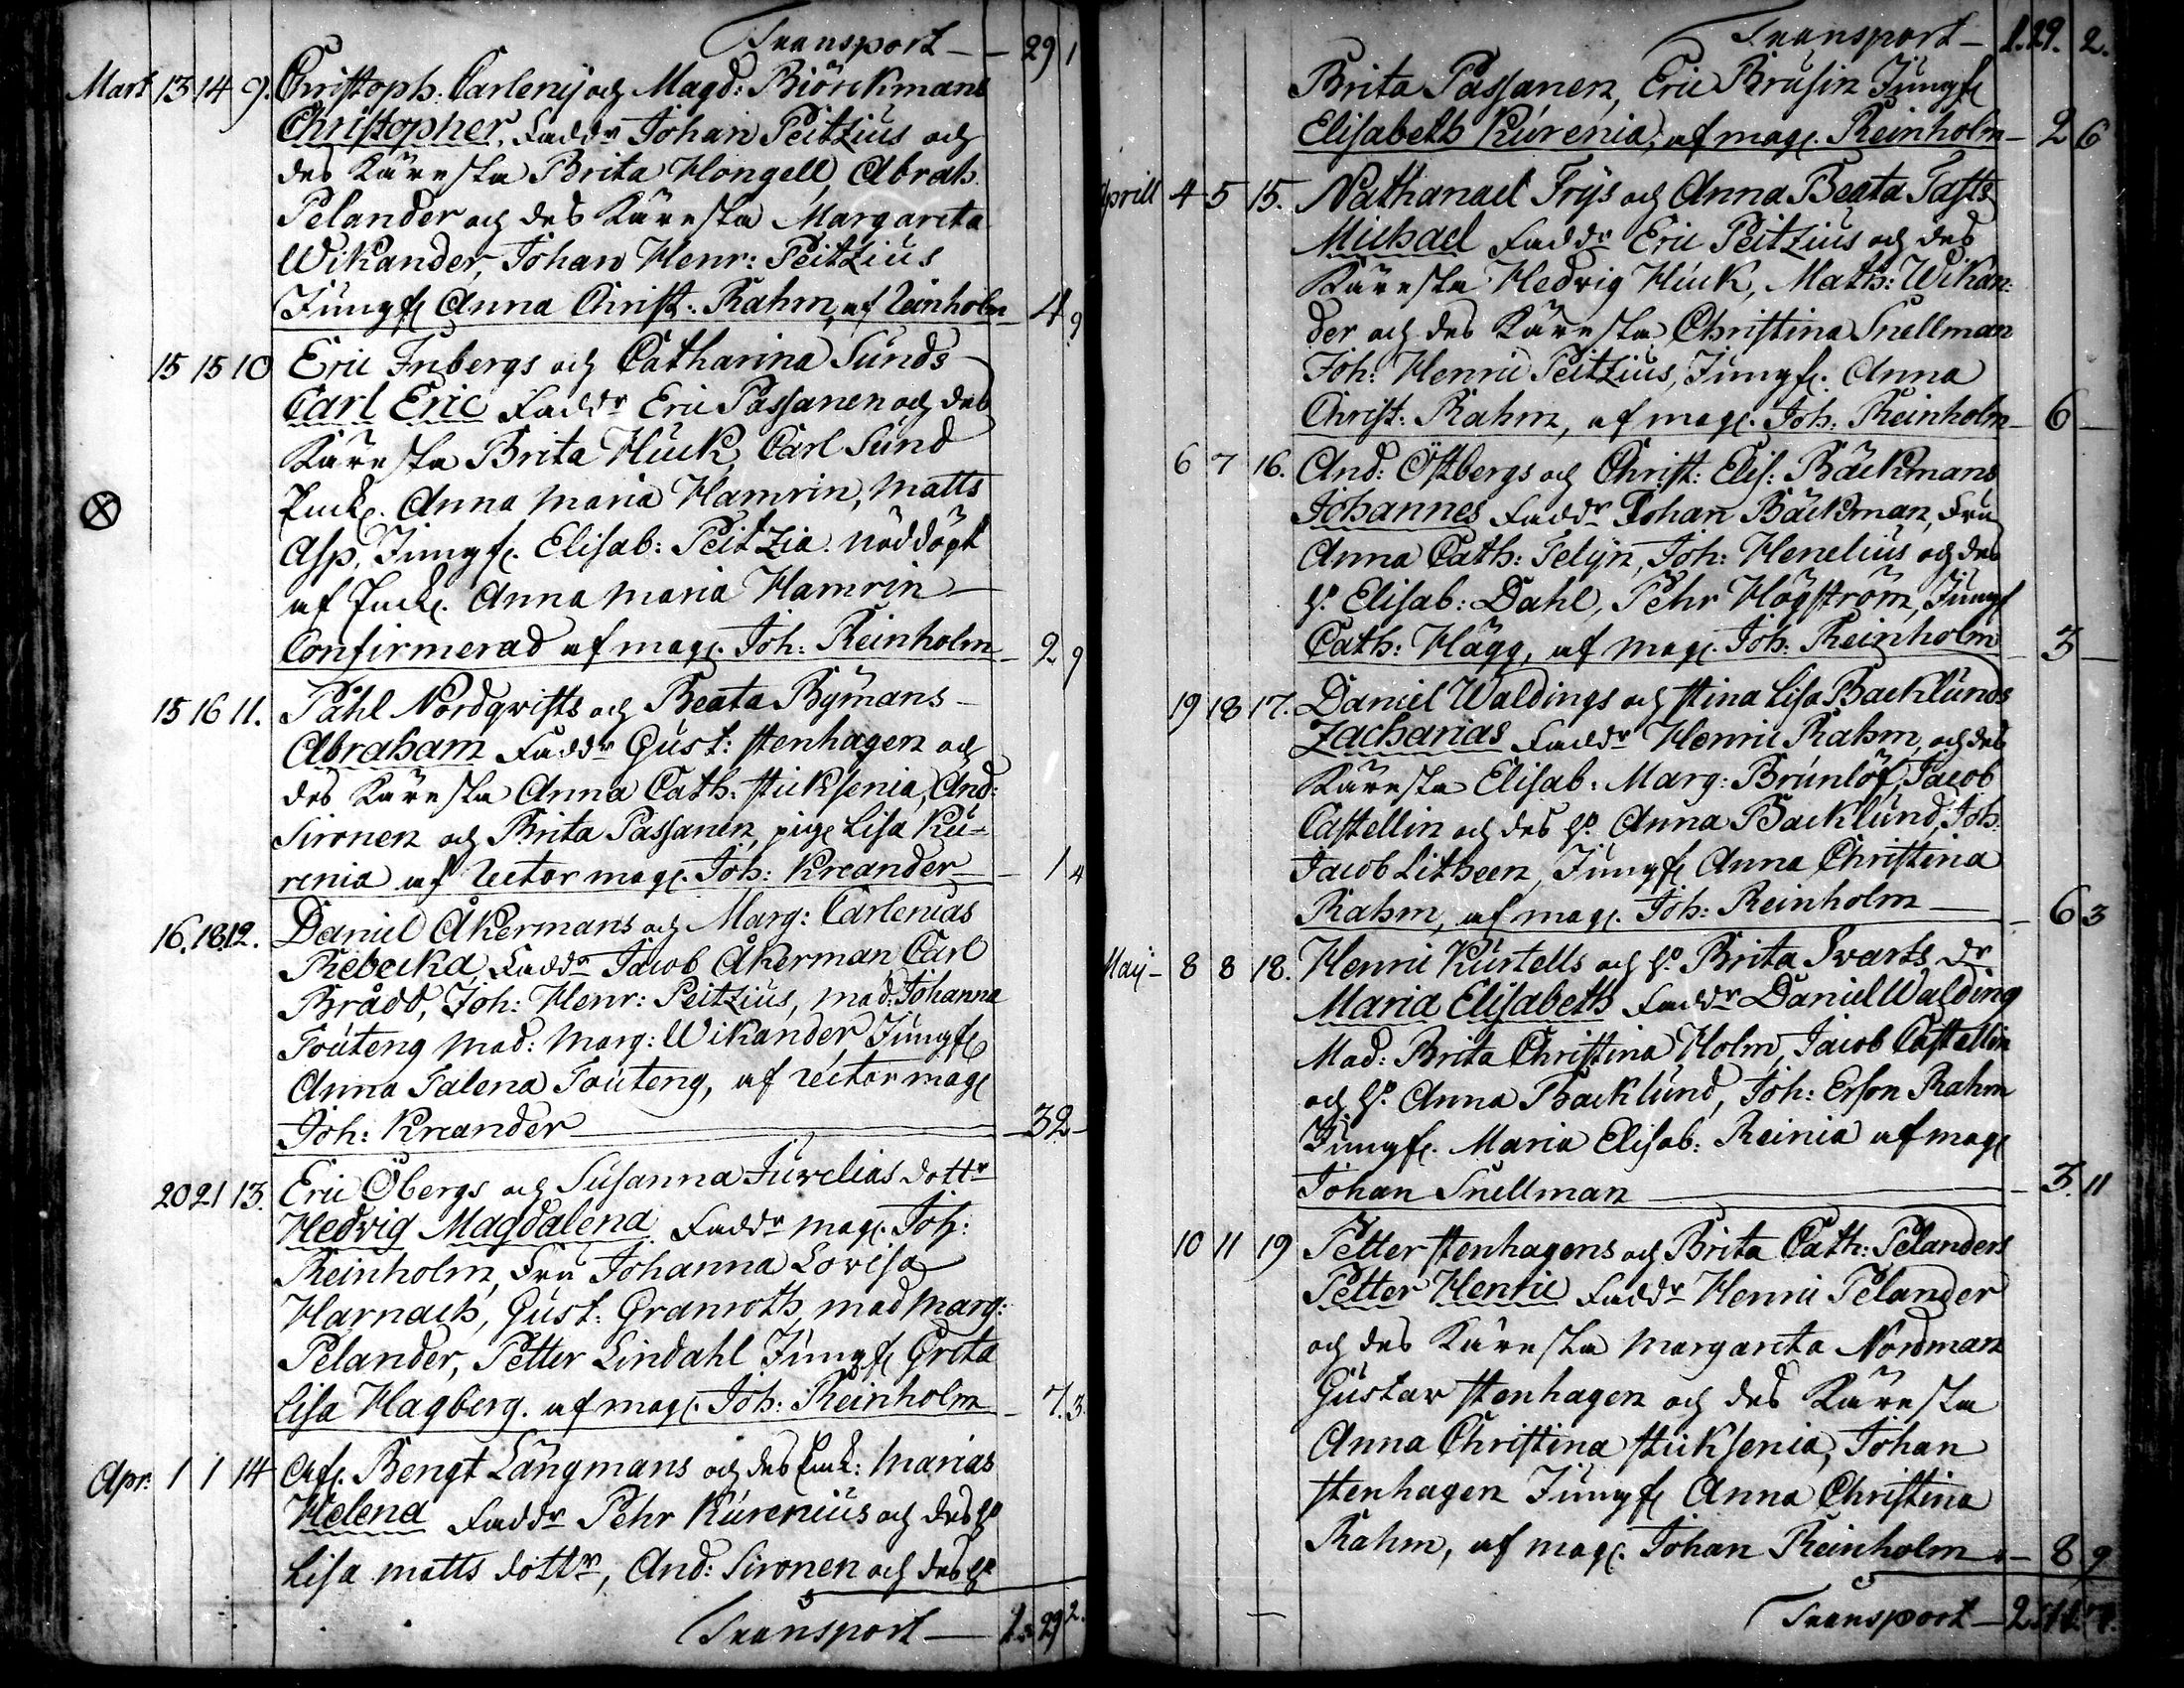 Transport — 29 1
Mart 13 14 9. Christoph. Carleny och Magd: Biörckmans
Christopher, Faddr Johan Peitzius och
des Käresta Brita Hongell, Abrah.
Pelander och des Käresta Margareta
Wikander, Johan Henr: Peitzius
Jungf. Anna Christ. Rahm, af Reinholm — 4 9
15 15 10 Eric Enbergs och Catharina Sunds
Carl Eric Faddr Eric Passanen och des
Käresta Brita Huck, Carl Sund
Enck. Anna Maria Hamrin, Matts
Asp, Jungf. Elisab: Peitzia. nöddöpt
af Enck. Anna Maria Hamrin —
Confirmerad af mag. Joh: Reinholm — 2 9
15 16 11. Påhl Nordqvists och Beata Bymans —
Abraham Faddr Gust: Stenhagen och
des Käresta Anna Cath: Sticksenia, And:
Sironen och Brita Passanen, pig. Lisa Ku-
renia af Rector mag. Joh: Kreander — 1 4
16. 18 12. Daniel Åkermans och Marg: Carlenias
Rebecka, Faddr Jacob Åkerman Carl
Brådd, Joh: Henr: Peitzius, mad: Johanna
Fouteng Mad: Marg: Wikander Jungf.
Anna Salena Fouteng, af rector mag.
Joh: Kreander — 32 —
20 21 13. Eric Öbergs och Susanna Juvelias dottr
Hedvig Magdalena Faddr mag. Joh:
Reinholm, Fru Johanna Lovisa
Harnach, Gust: Granroth, mad Marg:
Pelander, Petter Lindahl Jungf. Greta
Lisa Hagberg. af mag. Joh: Reinholm — 7. 3.
Apr: 1 1 14 Afl. Bengt Långmans och des Enck: Marias
Helena Faddr Pehr Kurenius och des H.
Lisa Matts dottr, And: Sironen och des H.
Transport — 1. 29 2.
Transport — 1. 29. 2.
Brita Passanen, Eric Brusin Jungf.
Elisabeth Kurenia, af mag. Reinholm — 2 6
Aprill 4 5 15. Nathanael Frys och Anna Beata Tasts
Michael Faddr Eric Peitzius och des
Käresta Hedvig Huck, Math: Wikan:
der och des Käresta Christina Snellman
Joh: Henric Peitzius, Jungf. Anna
Christ: Rahm, af mag. Joh: Reinholm — 6 —
6 7 16. And: Östbergs och Christ: Elis: Bäckmans
Johannes Faddr Johan Bäckman, Fru
Anna Cath: Selijn, Joh: Henelius och des
H. Elisab: Dahl, Pehr Högström, Jungf
Cath: Hägg, af mag. Joh: Reinholm — 3 —
19 18 17. Daniel Waldings och Stina Lisa Backlunds
Zacharias Faddr Henric Rahm, och des
Käresta Elisab: Marg: Brunlöf, Jacob
Castellin och des H. Anna Backlund, Joh:
Jacob Litheen, Jungf. Anna Christina
Rahm, af mag. Joh: Reinholm — 6 3
Maij — 8 8 18. Henric Kurtells och H. Brita Svarts dr
Maria Elisabeth Faddr Daniel Walding
Mad: Brita Christina Holm, Jacob Castellin
och H. Anna Backlund, Joh: Erson Rahm
Jungf. Maria Elisab: Reinia af mag.
Johan Snellman — 3. 11
10 11 19 Petter Stenhagens och Brita Cath: Pelanders
Petter Henric Faddr Henric Pelander
och des Käresta Margareta Nordman
Gustav Stenhagen och des Käresta
Anna Christina Sticksenia, Johan
Stenhagen Jungf. Anna Christina
Rahm, af mag. Johan Reinholm — 8 9
Transport — 2. 7.